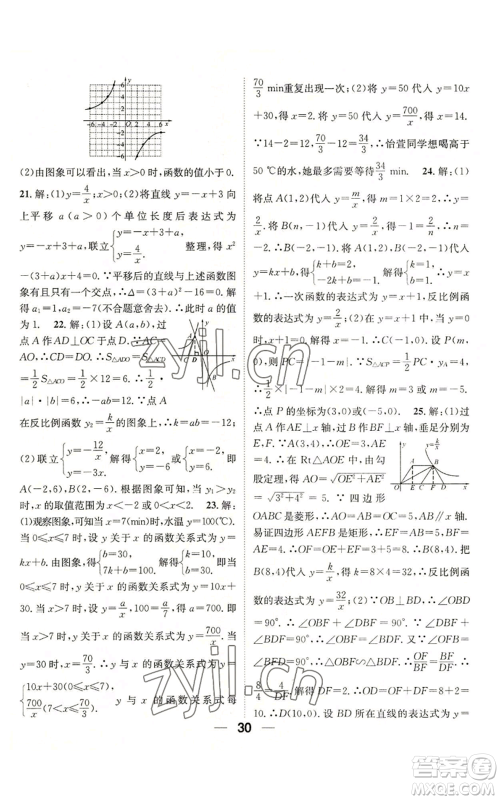 (2)由图象可以看出,当x>0时,函数的值小于0.
21.解:(1)y=4/x;x>0;(2)将直线y=-x+3向
上平移a(a>0)个单位长度后表达式为
y=-x+3+a,联立{y=-x+3+a, y=4/x. 整理,得x²
-(3+a)x+4=0.∵平移后的直线与上述函数图
象有且只有一个交点,∴Δ=(3+a)²-16=0,解
得a₁=1,a₂=-7(不合题意舍去).∴此时a的值
为1. 22.解:(1)设A(a,b),过
点A作AD⊥OC于D.∵AC=
AO,∴CD=DO.∴S△ADO=S△ACD
=1/2 S△ACO=1/2×12=6.∴1/2
·|a|·|b|=6.∴ab=-12.∵点A
在反比例函数y=k/x的图象上,∴k=ab=-12.
(2)联立{y=-12/x, y=-2x+2, 解得{x=-2, y=6 或{x=3, y=-4.
A(-2,6),B(3,-4).由图象可知,当y₁>y₂时,x
的取值范围为x<-2或0<x<3. 23.解:
(1)观察图象,可知:当x=7(min)时,水温y=100(℃).
当0≤x≤7时,设y关于x的函数关系式为y=kx
+b.{b=30, 7k+b=100. 解得{k=10, b=30. 即当0≤x≤7
时,y关于x的函数关系式为y=10x+30.
当x>7时,设y=a/x,100=a/7,解得a=700.即
当x>7时,y关于x的函数关系式为y=700/x.当
y=30时,x=70/3.∴y与x的函数关系式为y=
{10x+30(0≤x≤7), 700/x(7<x≤70/3). y与x的函数关系式每
70/3 min重复出现一次;(2)将y=50代入y=10x+
30,得x=2.将y=50代入y=700/x,得x=14.
∵14-2=12,70/3-12=34/3,∴怡萱同学想喝高于
50℃的水,她最多需要等待34/3 min. 24.解:(1)
将点A(1,2)代入y=m/x,得m=2.∴y=2/x.当y
=-1时,x=-2.∴B(-2,-1).设直线AB的表达式为y=kx+b,
将A(1,2),B(-2,-1)代入y=kx+b,
得{k+b=2, -2k+b=-1. 解得{k=1, b=1.
达式为y=x+1;∴y=x+1,反比例函
数的表达式为y=2/x;(2)在y=x+1中,当y=0
时,x+1=0,解得x=-1.∴C(-1,0).设P(m,
0),则PC=|-1-m|.∵S△ACP=1/2 PC·yA=4,
∴1/2×|-1-m|×2=4.解得m=3或m=-5.
∴点P的坐标为(3,0)或(-5,0). 25.解:(1)过
点A作AE⊥x轴,过B作BF⊥x轴,垂足分别为
E,F.∵A(3,4),∴OE=3,AE=4.由勾
股定理,得在Rt△AOE中,AO=√(OE²+AE²)
=√(3²+4²)=5.∵四边形
OABC是菱形,∴AO=AB=OC=5,AB∥x轴.
易证四边形AEFB是矩形.∴B(8,4).∴k=32.
将点B(8,4)代入y=k/x,得k=32.∴反比例函
数的表达式为y=32/x;(2)∵OB⊥BD,∴∠OBD
=90°.∴∠OBF+∠DBF=90°.∵∠DBF+
∠BDF=90°,∴∠OBF=∠BDF.又∵∠OFB=
∠BFD=90°,∴△OBF∽△BDF.∴OF/BF=BF/DF.∴
8/4=4/DF.解得DF=2.∴OD=OF+DF=8+2=
10.∴D(10,0).设BD所在直线的表达式为y=
30
zyjl.cn
zyjl.cn
答案圈
MXQE.COM